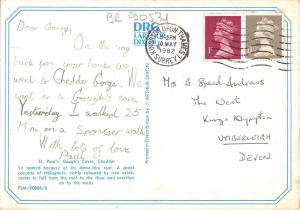 BR 00521
Dear Granny,
On the way
back from your home we
went to Cheddar Gorge. We
went to Gough's cave.
Yesterday I walked 25
Mm on a Sponser walk
With lots of love
Paul
St. Paul's, Gough's Caves, Cheddar
So named because of its dome-like roof. A great
cascade of stalagmite, richly coloured by iron oxide,
seems to fall from the roof to the floor and overflow
on to the rocks
PSM/80888/6
Printed in Great Britain by J. ARTHUR DIXON
DRG
KINGSTON UPON THAMES
5PM
10 MAY
1982
SURREY
Mrs B Speed-Andrews
The West
Kings Nympton
UMBERLEIGH
DEVON